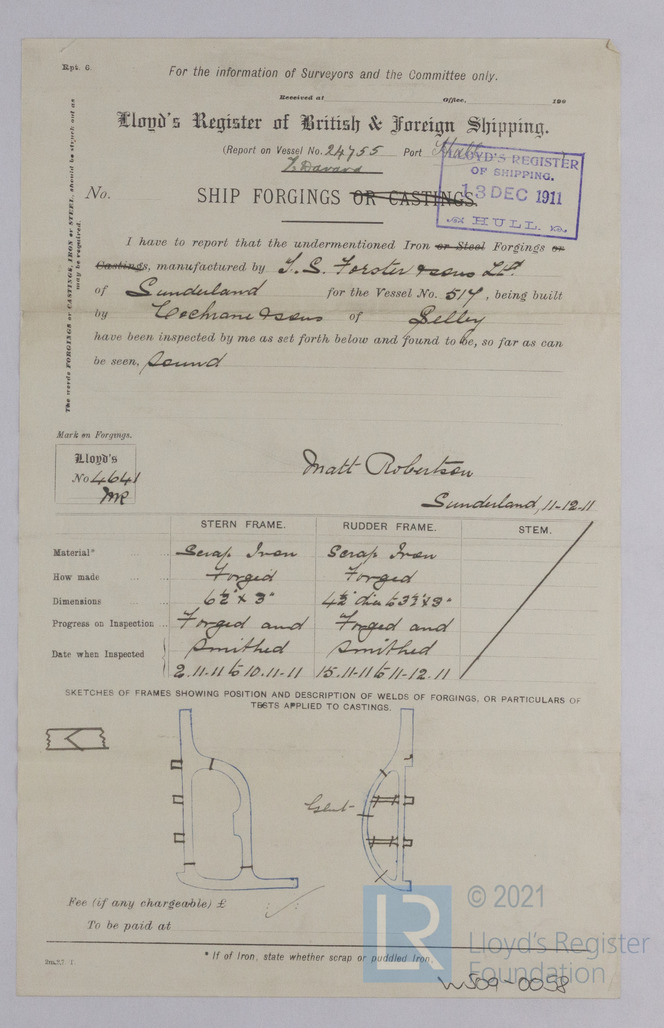 Rpt. 6.
For the information of Surveyors and the Committee only.
Received at Office, 190
Lloyd's Register of British & Foreign Shipping.
(Report on Vessel No. 24755 Port Hull
LLOYD'S REGISTER
OF SHIPPING.
13 DEC 1911
HULL.
No.
SHIP FORGINGS OR CASTINGS.
The words FORGINGS or CASTINGS, IRON or STEEL, should be struck out as
may be required.
I have to report that the undermentioned Iron or Steel Forgings or
Castings, manufactured by T. S. Forster & sons Ltd
of Sunderland for the Vessel No. 517, being built
by Cochrane & sons of Selby
have been inspected by me as set forth below and found to be, so far as can
be seen, sound
Mark on Forgings.
Lloyd's
No 4641
MR
Matt Robertson
Sunderland, 11-12-11
STERN FRAME. RUDDER FRAME. STEM.
Material* Scrap Iron Scrap Iron
How made Forged Forged
Dimensions 6½" x 3" 4½" dia to 3½" x 3"
Progress on Inspection Forged and Forged and
smithed smithed
Date when Inspected 2.11-11 to 10.11-11 15.11-11 to 11-12.11
SKETCHES OF FRAMES SHOWING POSITION AND DESCRIPTION OF WELDS OF FORGINGS, OR PARTICULARS OF
TESTS APPLIED TO CASTINGS.
Fee (if any chargeable) £
To be paid at
* If of Iron, state whether scrap or puddled Iron.
LR
© 2021
Lloyd's Register
Foundation
W509-0058